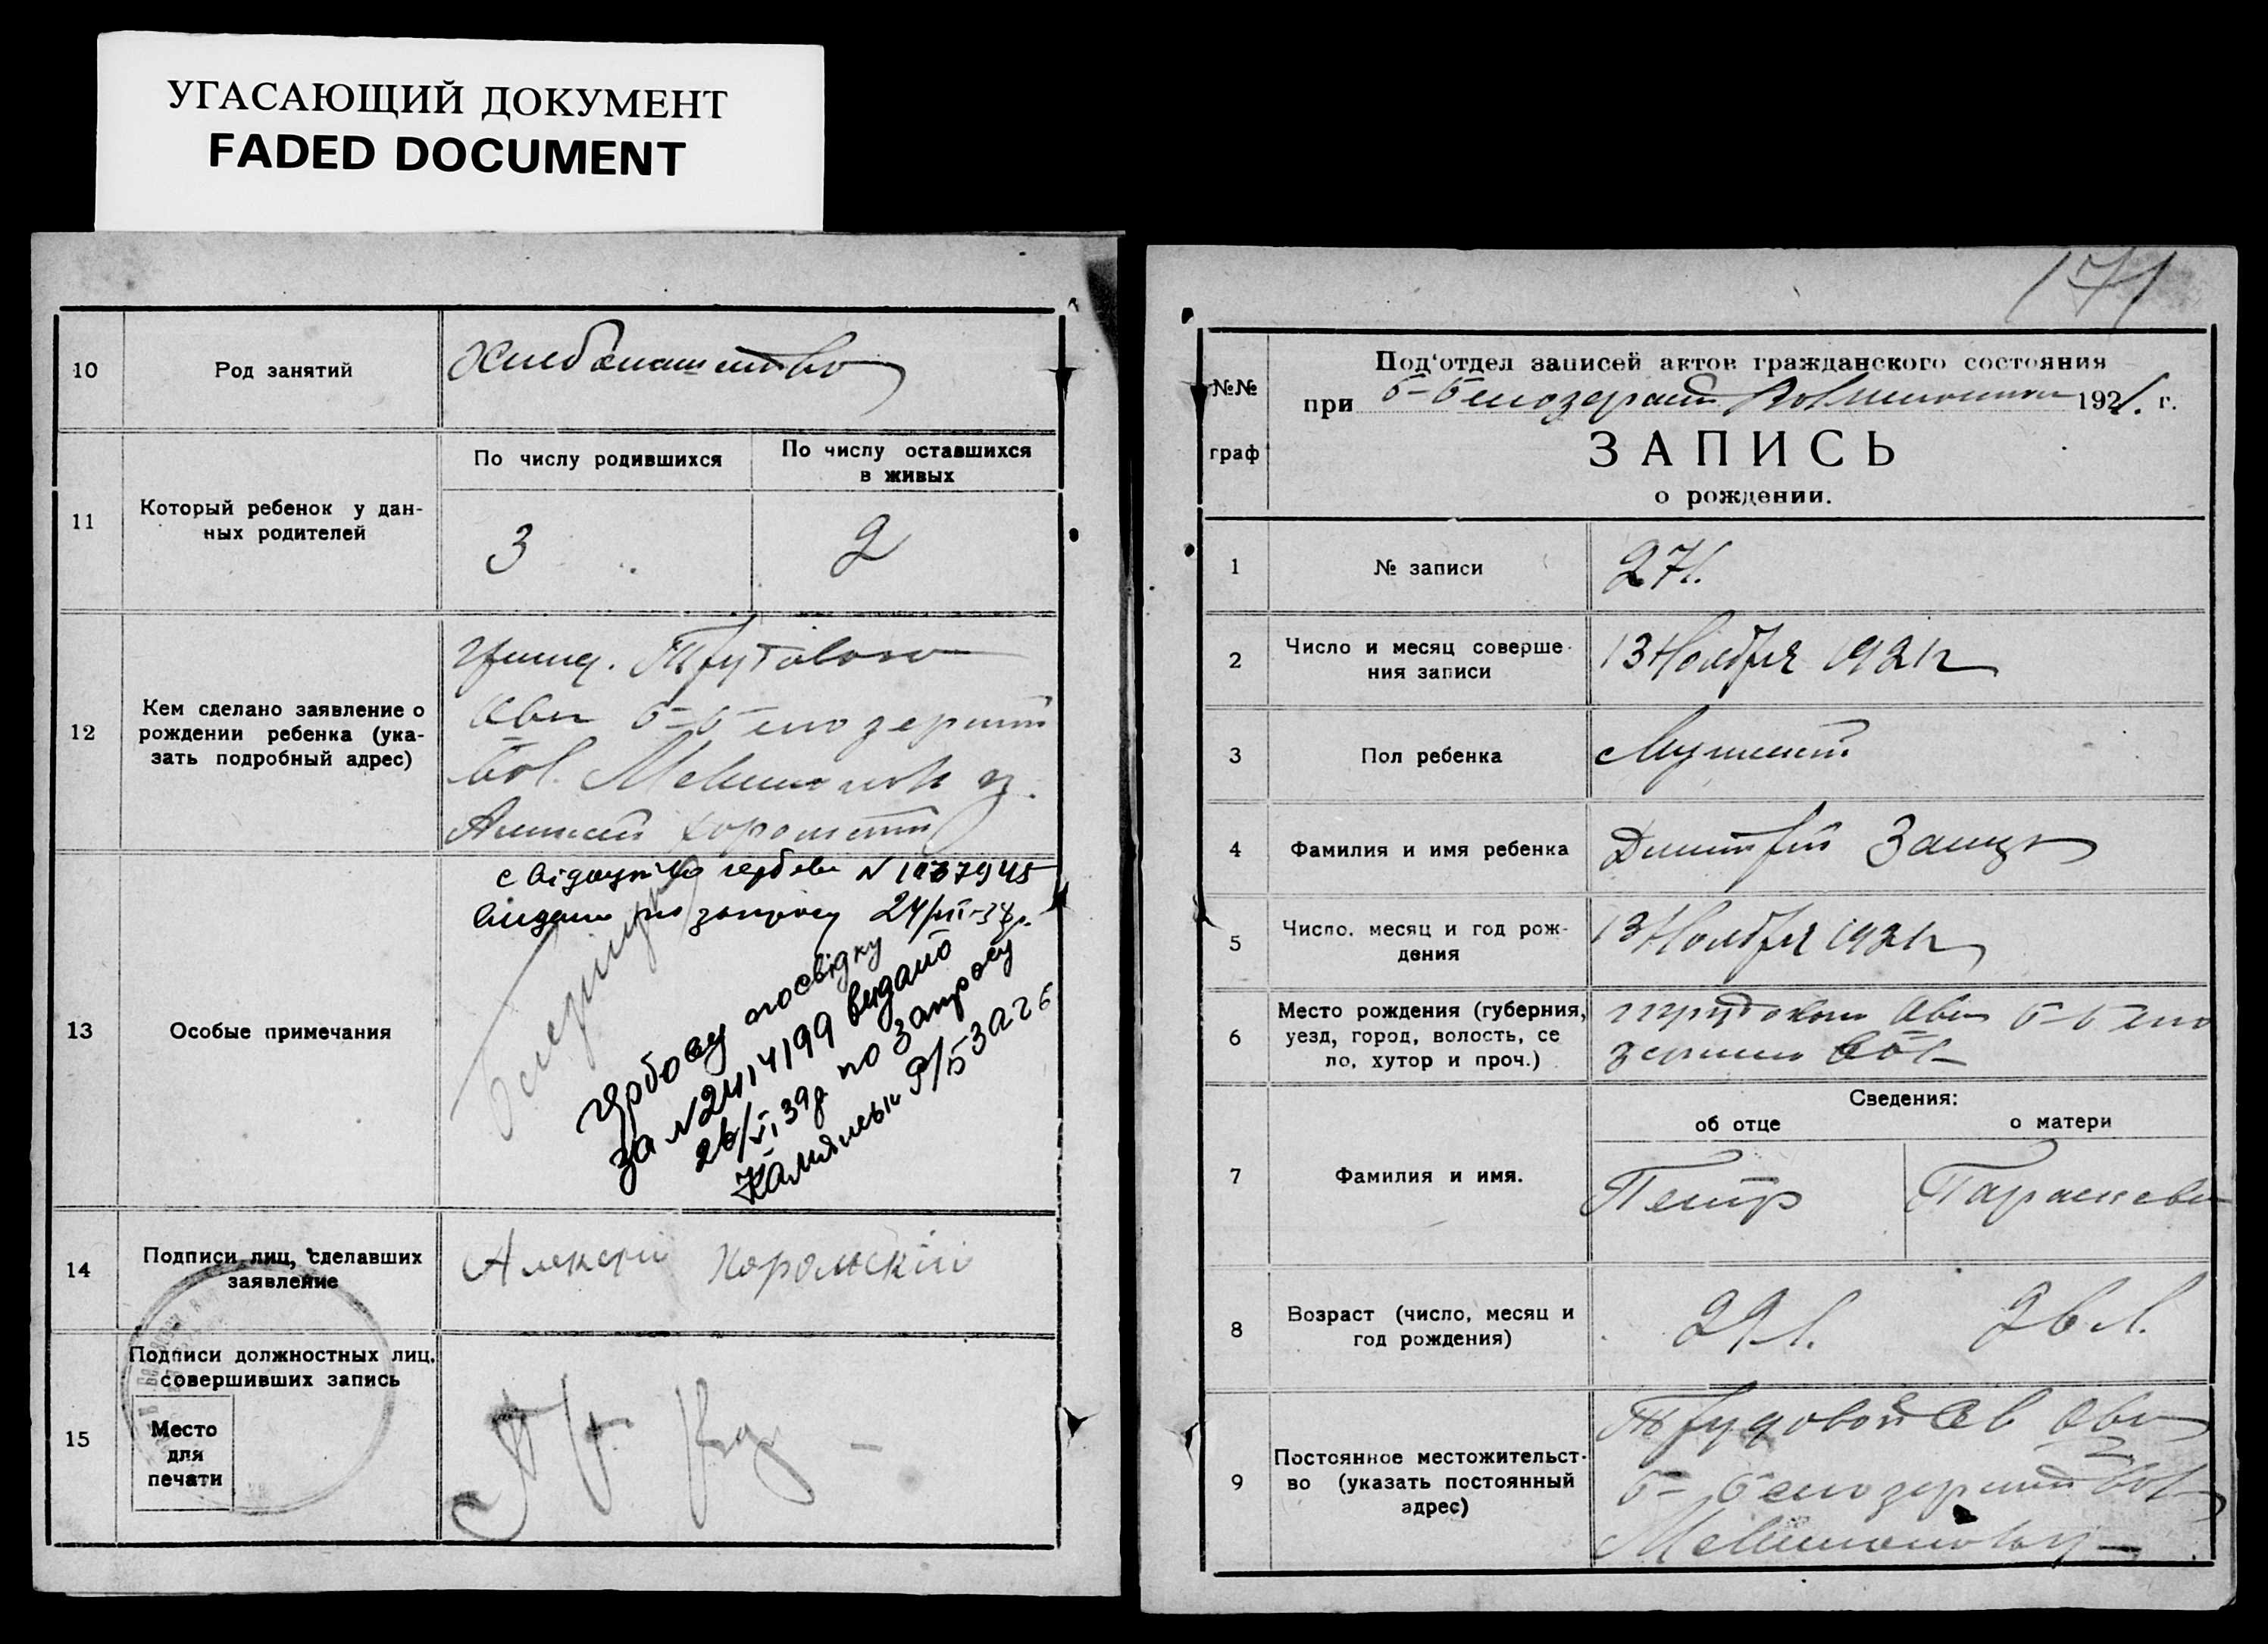 УГАСАЮЩИЙ ДОКУМЕНТ
FADED DOCUMENT
10
Род занятий
Хлебопашество
11
Который ребенок у дан-
ных родителей
По числу родившихся
По числу оставшихся
в живых
3
2
12
Кем сделано заявление о
рождении ребенка (ука-
зать подробный адрес)
Вол.
Алексей
13
Особые примечания
N 1037945
по запросу 24/
Гербову посвідку
за N 2414199 видано
26/VI 39р по запросу
14
Подписи лиц, сделавших
заявление
Алексей Хорольский
15
Подписи должностных лиц,
совершивших запись
Место
для
печати
171
№№
граф
Под'отдел записей актов гражданского состояния
при Б-Белозерской 1921. г.
ЗАПИСЬ
о рождении.
1
№ записи
271.
2
Число и месяц соверше-
ния записи
13 Ноября 1921 г
3
Пол ребенка
Мужской
4
Фамилия и имя ребенка
Димитрий Заяц
5
Число, месяц и год рож-
дения
13 Ноября 1921 г
6
Место рождения (губерния,
уезд, город, волость, се
ло, хутор и проч.)
Б-Бело
зерской вол
Сведения:
об отце
о матери
7
Фамилия и имя.
Петр
Параскева
8
Возраст (число, месяц и
год рождения)
29 л.
26 л.
9
Постоянное местожительст-
во (указать постоянный
адрес)
Трудовой
Б-Белозерской вол